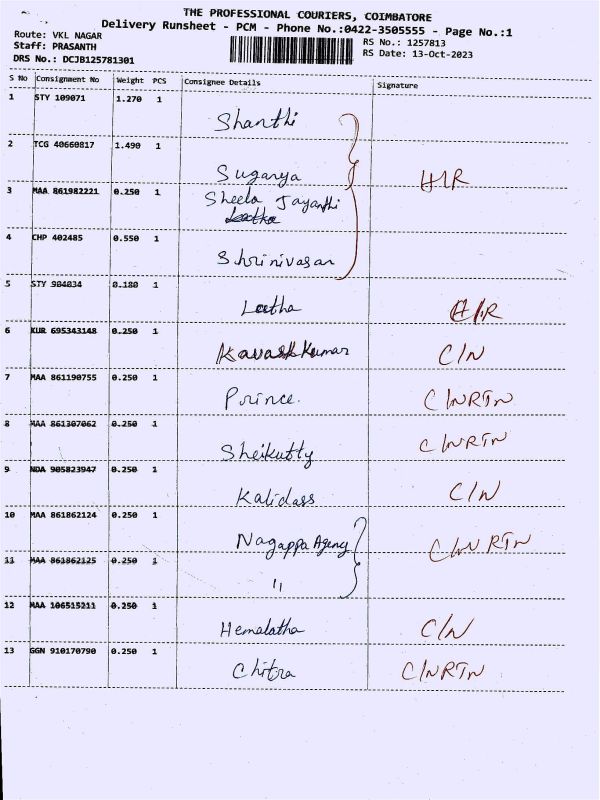 THE PROFESSIONAL COURIERS, COIMBATORE
Delivery Runsheet - PCM - Phone No.:0422-3505555 - Page No.:1
Route: VKL NAGAR
RS No.: 1257813
Staff: PRASANTH
RS Date: 13-Oct-2023
DRS No.: DCJB125781301
S No Consignment No Weight PCS Consignee Details Signature
1 STY 109071 1.270 1 Shanthi
2 TCG 40660817 1.490 1 Suganya H/R
3 MAA 861982221 0.250 1 Sheela Jayanthi
Leetha
4 CHP 402485 0.550 1 Shrinivasan
5 STY 904034 0.180 1 Leetha H/R
6 KUR 695343148 0.250 1 Kumar C/N
7 MAA 861190755 0.250 1 Prince. C/NRTN
8 MAA 861307062 0.250 1 Sheikutty C/NRTN
9 NDA 905823947 0.250 1 Kalidass C/N
10 MAA 861862124 0.250 1 Nagappa Agency C/N RTN
11 MAA 861862125 0.250 1 "
12 MAA 106515211 0.250 1 Hemalatha C/N
13 GGN 910170790 0.250 1 Chitra C/NRTN